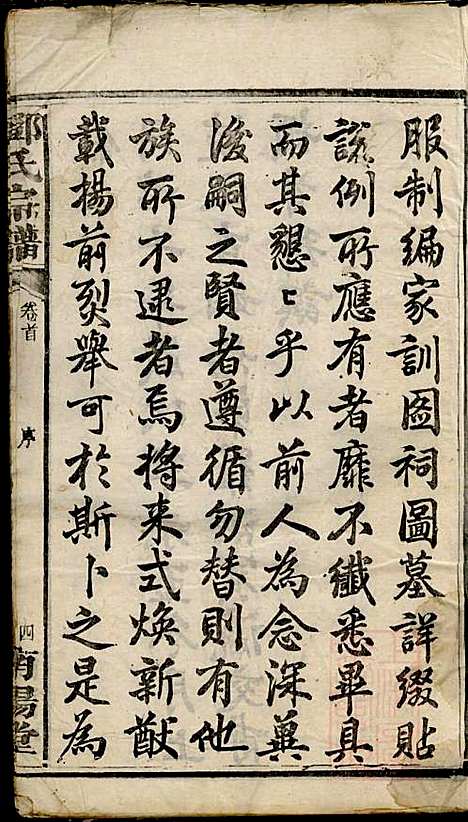 服制编家訓啚祠圖墓詳綴貼
談例所應有者靡不纖悉畢具
而其懇〻乎以前人為念深冀
後嗣之賢者遵循勿替則有他
族所不逮者焉将来式焕新猷
載揚前烈舉可於斯卜之是為
鄧氏宗譜
卷首
序
四
南陽堂